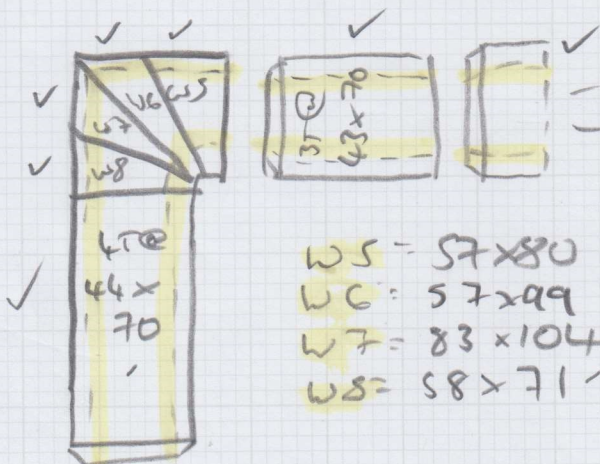 W5
W6
W7
W8
4T@
44x
70
3T@
43x70
W5 = 57x80
W6 = 57x99
W7 = 83x104
W8 = 58x71